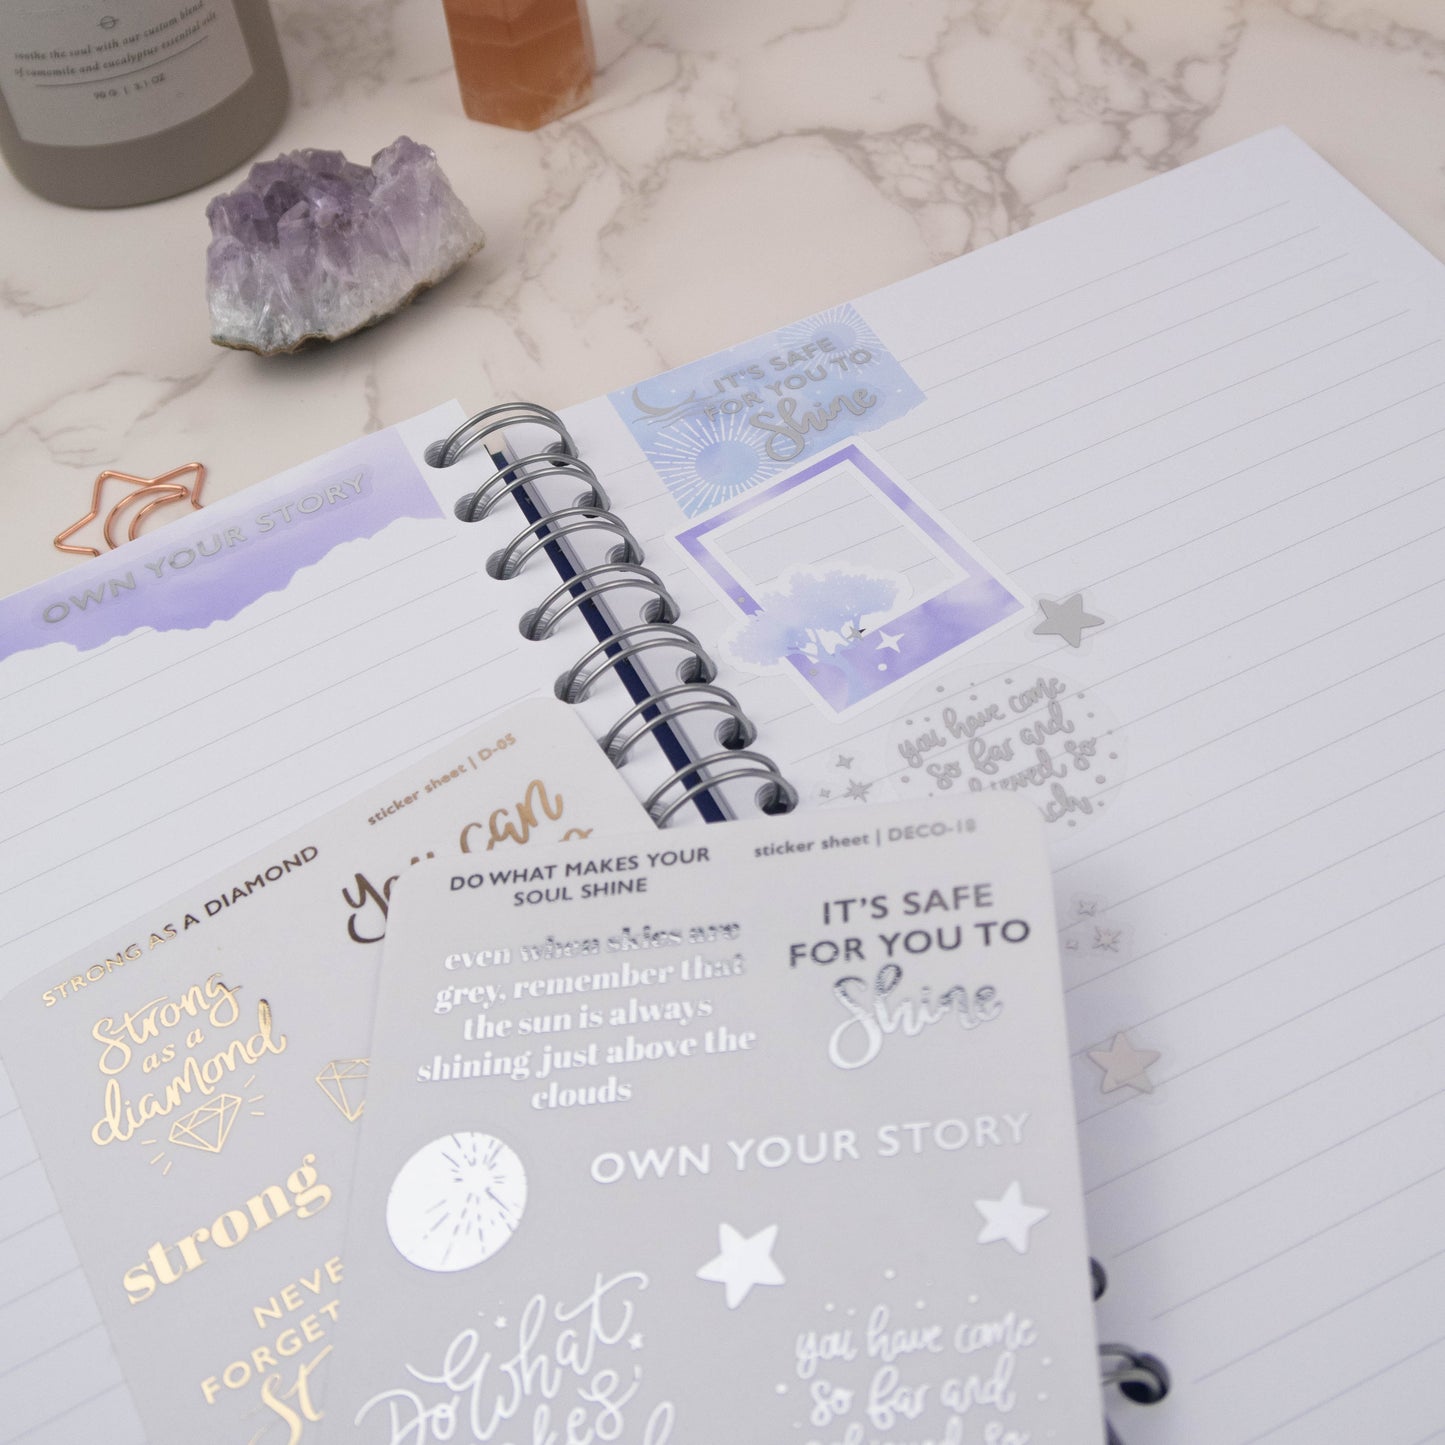 soothe the soul with our custom blend
of camomile and eucalyptus essential oils
90 G | 3.1 OZ
OWN YOUR STORY
IT'S SAFE
FOR YOU TO
Shine
you have come
so far and
so
sticker sheet | D-05
STRONG AS A DIAMOND
You can
Strong
as a
diamond
strong
NEVE
FORGET
St
DO WHAT MAKES YOUR
SOUL SHINE
sticker sheet | DECO-18
even when skies are
grey, remember that
the sun is always
shining just above the
clouds
IT'S SAFE
FOR YOU TO
Shine
OWN YOUR STORY
Do What
you have come
so far and